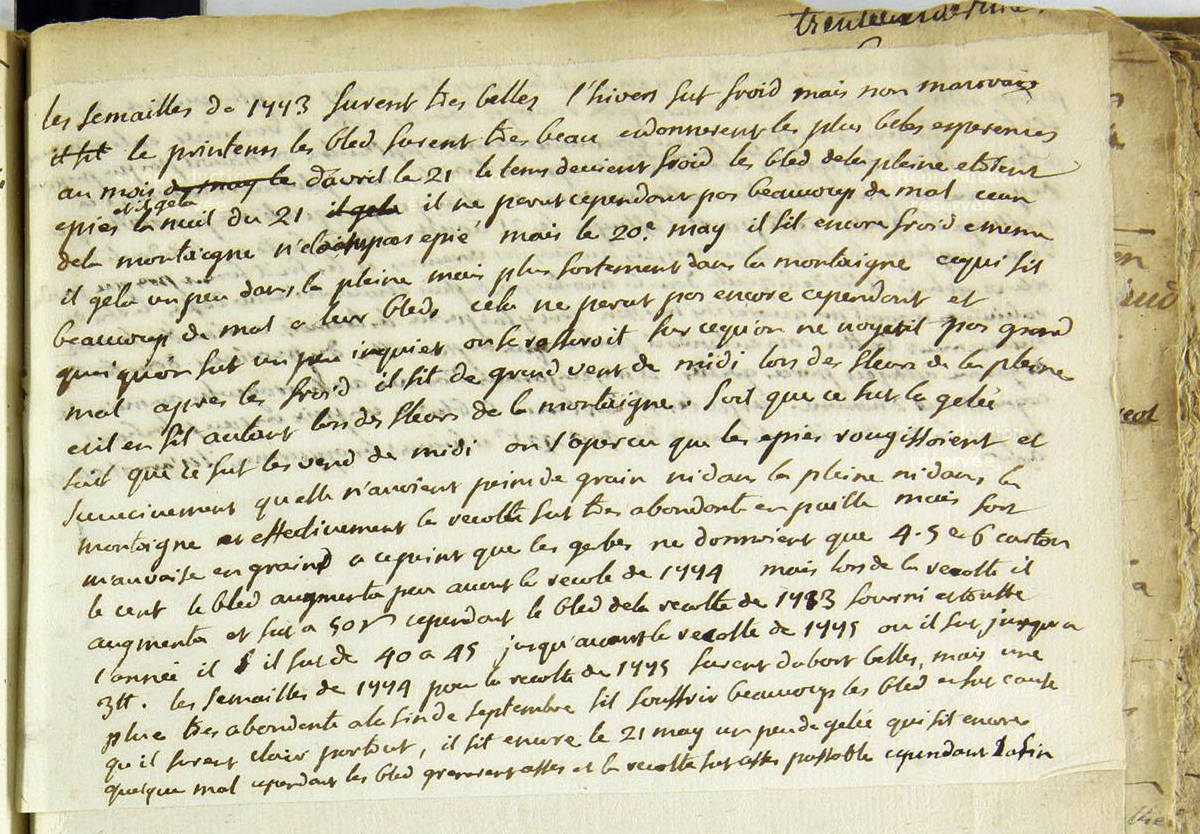 les semailles de 1773 furent tres belles l'hiver fut froid mais non mauvais
il fit le printems les bled furent tres beau et donnerent les plus beles esperences
au mois de may le d'avril le 21 le tems devient froid les bled de la pleine etoient
et il gela
epies la nuit du 21 il gela il ne parut cependant pas beaucoup de mal ceux
de la montaigne n'etoint pas epié mais le 20e may il fit encore froid e meme
il gela un peu dans la pleine mais plus fortement dans la montaigne ce qui fit
beaucoup de mal a leur bleds cela ne parut pas encore cependant et
quoi qu'on fut un peu inquiet on se rassuroit sur ce qu'on ne voyet pas grand
mal apres les froid il fit de grand vent de midi lors des fleurs de la pleine
et il en fit autant lors des fleurs de la montaigne. soit que ce fut la gelée
soit que ce fut les vend de midi on s'apercu que les epies rougissoient et
qu'elle n'avoient poin de grain ni dans la pleine ni dans la
montaigne et effectivement la recolte fut tres abondante en paille mais fort
mauvaise en grain a ce point que les gerbes ne donnoient que 4. 5 et 6 carton
le cent le bled augmenta peu avant la recole de 1774 mais lors de la recolte il
augmenta et fut a 50 s cependant le bled de la recolte de 1773 fourni et toutte
l'année il il fut de 40 a 45 jusqu'avant la recolte de 1775 ou il fut jusqu'a
3tt. les semailles de 1774 pour la recolte de 1775 furent d'abort belles, mais une
pluie tres abondente a la fin de septembre fit souffrir beaucoup les bled et fut cause
qu'il furent clair partout, il fit encore le 21 may un peu de gelée qui fit encore
quelque mal cependant les bled grenerent asses et la recolte fut asses passable cependant la fin